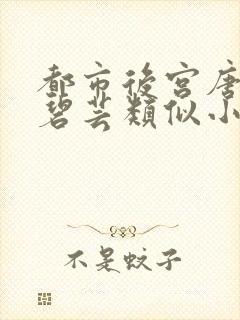 都市後宮唐
碧芸類似小
不是蚊子